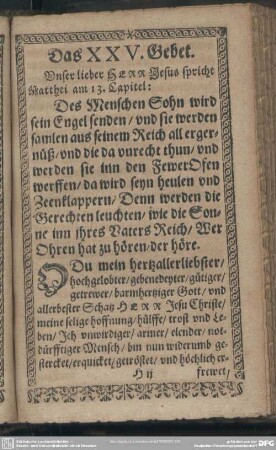 Das XXV. Gebet.
Vnser lieber HERR Jesus spricht
Matthei am 13. Capitel:
Des Menschen Sohn wird
sein Engel senden / vnd sie werden
samlen aus seinem Reich all erger-
nüß / vnd die da vnrecht thun / vnd
werden sie inn den FewerOfen
werffen / da wird seyn heulen vnd
Zeenklappern / Denn werden die
Gerechten leuchten / wie die Son-
ne inn jhres Vaters Reich / Wer
Ohren hat zu hören / der höre.
O Du mein hertzallerliebster /
hochgelobter / gebenedeyter / gütiger /
getrewer / barmhertziger Gott / vnd
allerbester Schatz HERR Jesu Christe /
meine selige hoffnung / hülffe / trost vnd Le-
ben / Ich vnwirdiger / armer / elender / not-
dürfftiger Mensch / bin nun widerumb ge-
stercket / erquicket / getröstet / vnd höchlich er-
H ij frewet /